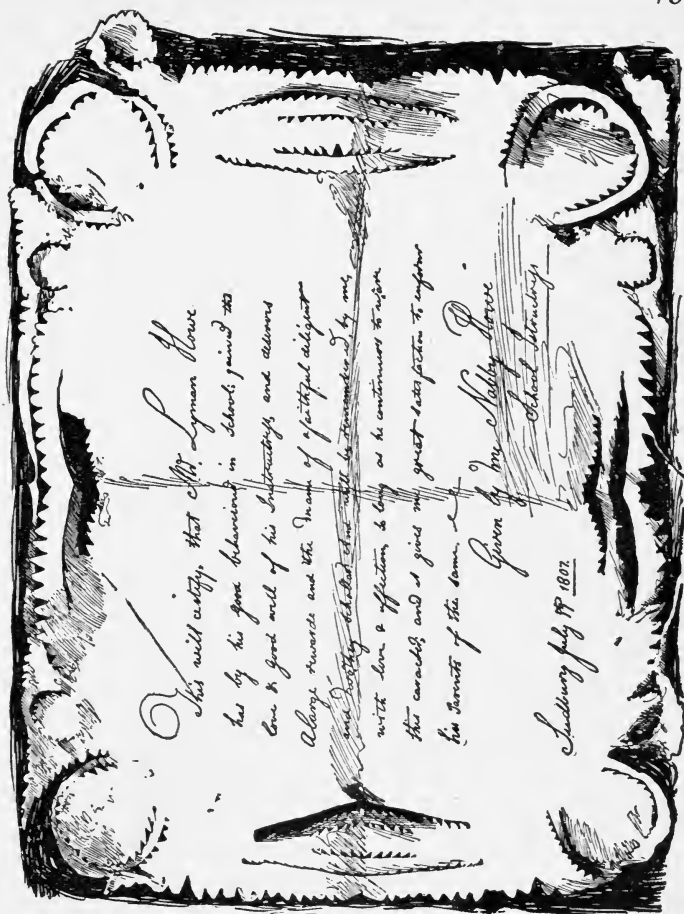 This will certify, that Mr. Lyman Howe
has by his good behaviour in School; gained the
love & good will of his Instructress, and deserves
A large rewards and the Name of a faithful diligent
and worthy Scholar and will be remembered, by me,
with love & affection, so long as he continues to
this caracter; and it gives me great satisfaction to inform
his Parents of the same.
Given by me Nabby Howe
School Instructress
Sudbury July 19th 1807.